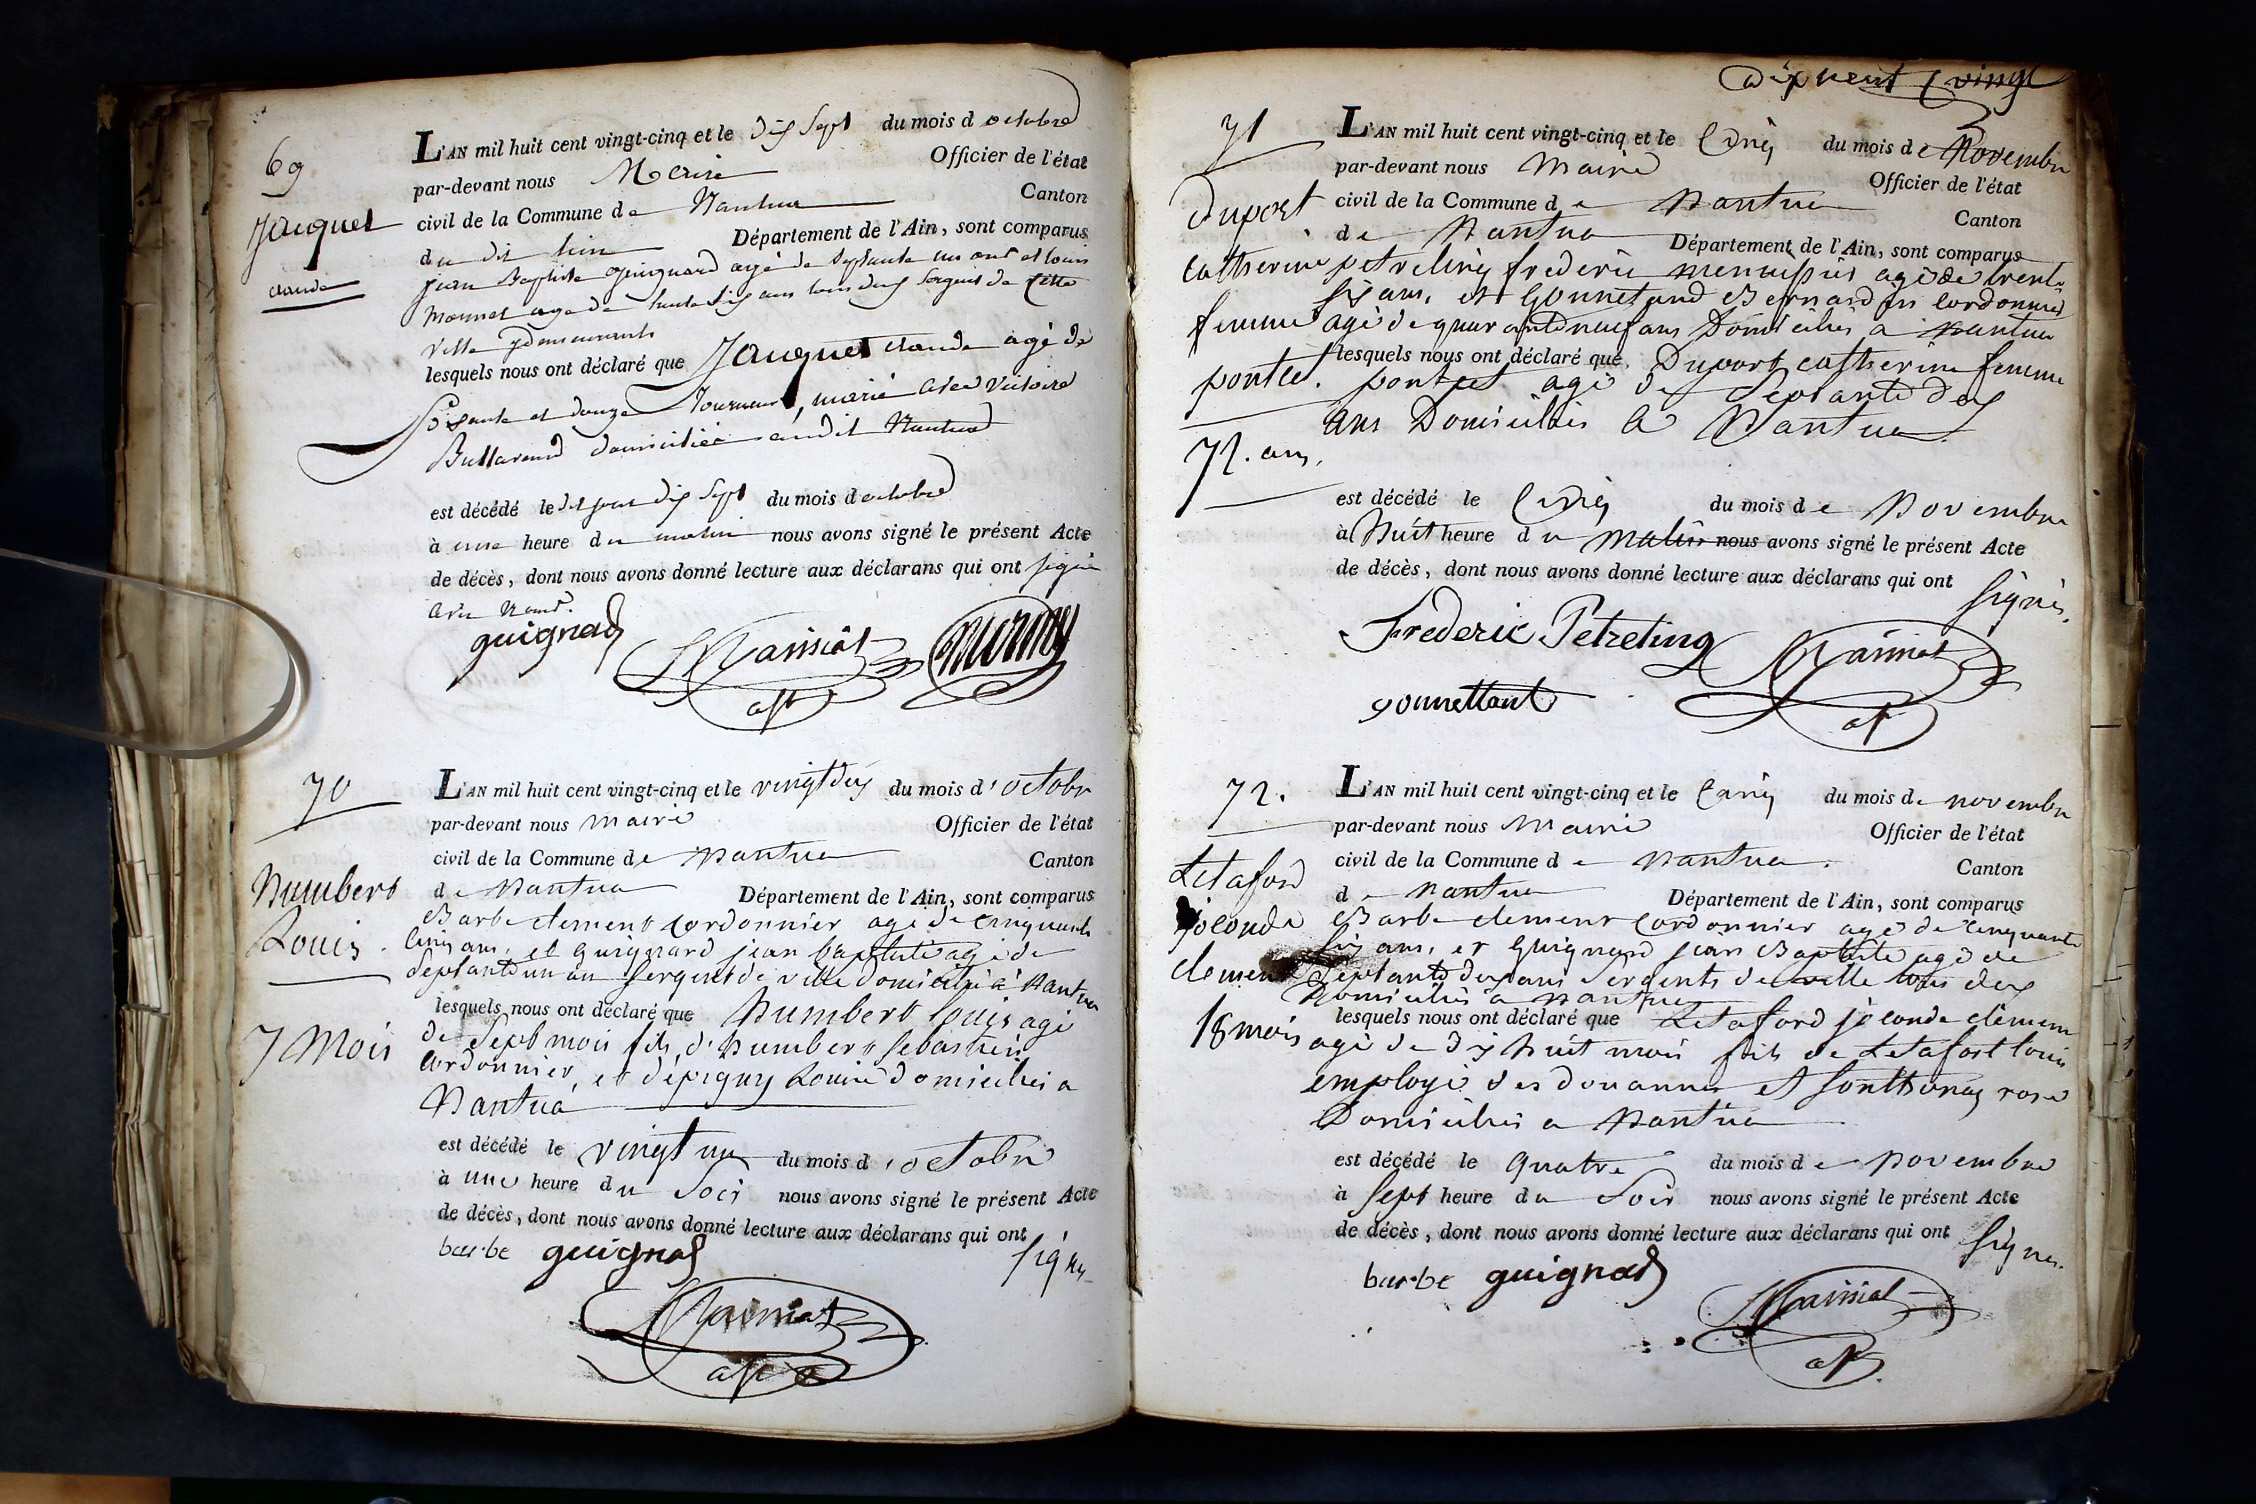 69
Jacquet
claude
L'AN mil huit cent vingt-cinq et le dix Sept du mois d octobre
par-devant nous Maire Officier de l'état
civil de la Commune de Nantua Canton
du dit lieu Département de l'Ain, sont comparus
jean Baptiste Guignard agé de Septante un ans et louis
Monnet age de trente Six ans tous deux Sergent de Cette
Ville y demeurants
lesquels nous ont déclaré que Jacquet claude agé de
Soixante et douze Tourneur, marié avec Victoire
Bullavend domicilié audit Nantua
est décédé le dit jour dix Sept du mois d octobre
à une heure du matin nous avons signé le présent Acte
de décès, dont nous avons donné lecture aux déclarans qui ont signé
avec nous.
guignard Maissiat monnet
apt
70
Humbert
Louis.
7 Mois
L'AN mil huit cent vingt-cinq et le vingt deux du mois d'octobre
par-devant nous maire Officier de l'état
civil de la Commune de Nantua Canton
de Nantua Département de l'Ain, sont comparus
Barbe clement cordonnier agé de cinquante
cinq ans, et Guignard jean baptiste agé de
Septante un an Sergent de ville Domiciliés à Nantua
lesquels nous ont déclaré que Humbert louis agé
de Sept mois fils d'humbert Sebastien
cordonnier, et depigny Louise domiciliés a
Nantua
est décédé le vingt un du mois d'octobre
à une heure du Soir nous avons signé le présent Acte
de décès, dont nous avons donné lecture aux déclarans qui ont
signés
barbe guignard
Maissiat
apt
dix neuf vingt
71
Duport
Catherine
femme
pontet.
72. ans.
L'AN mil huit cent vingt-cinq et le Cinq du mois de Novembre
par-devant nous Maire Officier de l'état
civil de la Commune de Nantua Canton
de Nantua Département de l'Ain, sont comparus
petreling frederic menuisier agé de trente
six ans, et Gonnetand Bernardin cordonnier
agé de quarante neuf ans Domiciliés a Nantua
lesquels nous ont déclaré que Duport catherine femme
pontet agé de Septante deux
ans Domiciliés a Nantua
est décédé le Cinq du mois de Novembre
à huit heure du Matin nous avons signé le présent Acte
de décès, dont nous avons donné lecture aux déclarans qui ont
signés.
Frederic Petreling Maissiat
gonnettant
apt
72.
Letaford
joconde
clement
18 mois
L'AN mil huit cent vingt-cinq et le Cinq du mois de novembre
par-devant nous Maire Officier de l'état
civil de la Commune de Nantua. Canton
de Nantua Département de l'Ain, sont comparus
Barbe clement cordonnier agé de cinquante
six ans, et Guignard jean Baptiste agé de
Septante deux ans Sergents de ville tous deux
Domiciliés a Nantua
lesquels nous ont déclaré que Letaford joconde clement
agé de dix huit mois fils de Letafort louis
employé des douannes et Sonthonax rose
Domiciliés a Nantua
est décédé le quatre du mois de Novembre
à sept heure du Soir nous avons signé le présent Acte
de décès, dont nous avons donné lecture aux déclarans qui ont
signés.
barbe guignard
Maissiat
apt